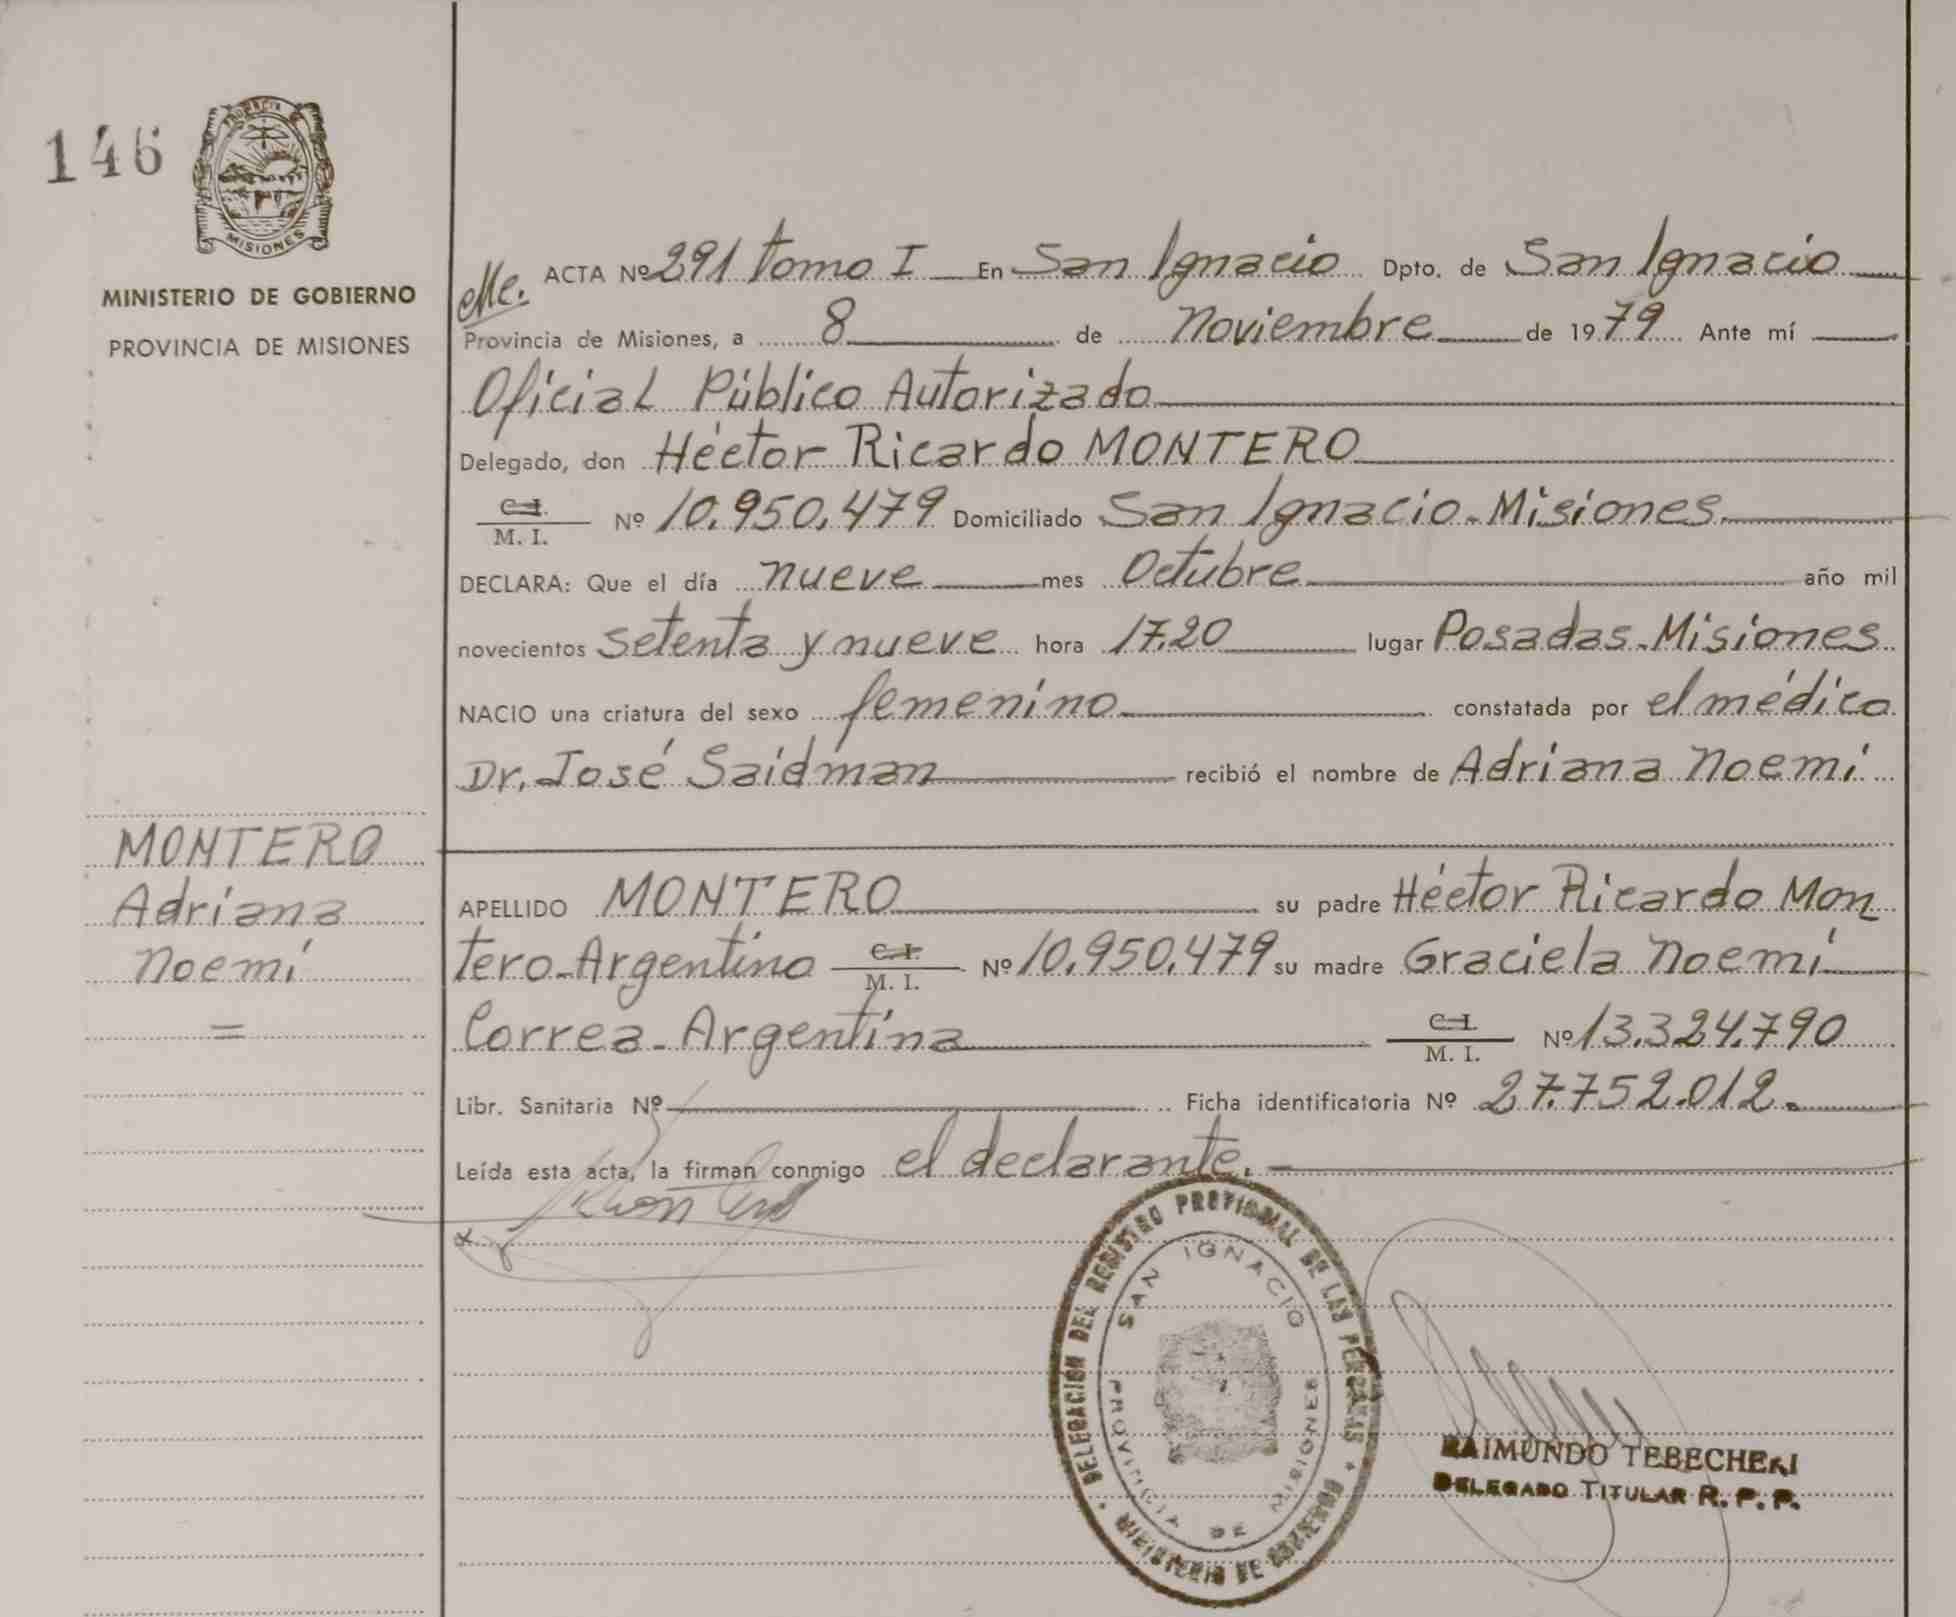 146
PROVINCIA
MISIONES
MINISTERIO DE GOBIERNO
PROVINCIA DE MISIONES
MONTERO
Adriana
Noemí
=
Me. ACTA Nº 291 tomo I En San Ignacio Dpto. de San Ignacio
Provincia de Misiones, a 8 de Noviembre de 1979 Ante mí
Oficial Público Autorizado
Delegado, don Héctor Ricardo MONTERO
C. I.
M. I. Nº 10.950.479 Domiciliado San Ignacio-Misiones.
DECLARA: Que el día nueve mes Octubre año mil
novecientos setenta y nueve hora 17.20 lugar Posadas-Misiones
NACIO una criatura del sexo femenino constatada por el médico
Dr. José Saidman recibió el nombre de Adriana Noemí
APELLIDO MONTERO su padre Héctor Ricardo Mon
tero-Argentino C. I. M. I. Nº 10.950.479 su madre Graciela Noemí
Correa-Argentina C. I. M. I. Nº 13.324.790
Libr. Sanitaria Nº Ficha identificatoria Nº 27.752.012.
Leída esta acta, la firman conmigo el declarante.
DELEGACION DEL REGISTRO PROVINCIAL DE LAS PERSONAS
MINISTERIO DE GOBIERNO
SAN IGNACIO
PROVINCIA DE MISIONES
RAIMUNDO TEBECHERI
DELEGADO TITULAR R. P. P.